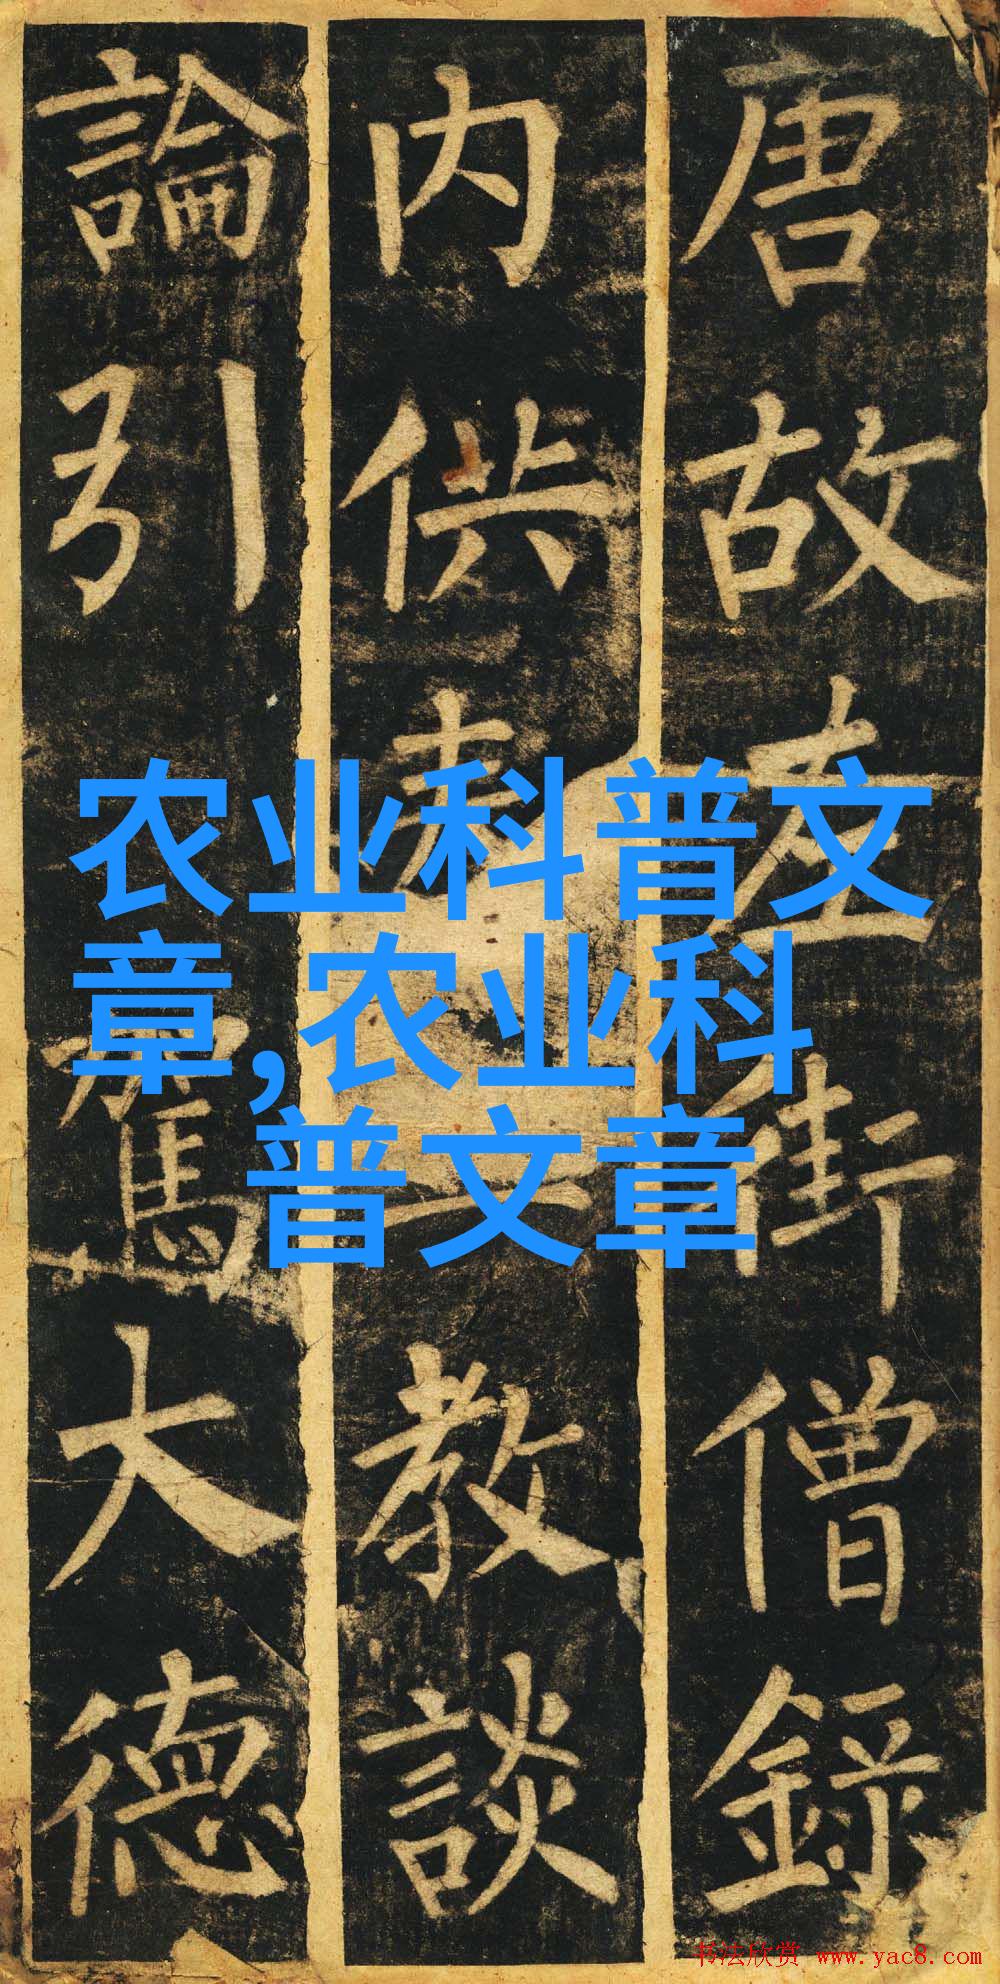 唐故左街僧錄
內供奉三教談
論引駕大德
农业科普文
章,农业科
普文章
书法欣赏 www.yac8.com